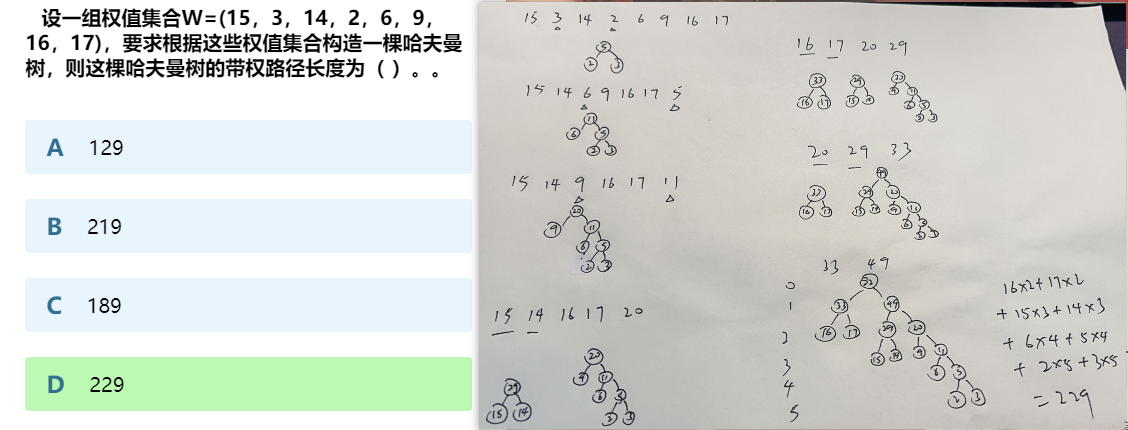 设一组权值集合W=(15，3，14，2，6，9，
16，17)，要求根据这些权值集合构造一棵哈夫曼
树，则这棵哈夫曼树的带权路径长度为（ ）。。
A 129
B 219
C 189
D 229
15 3 14 2 6 9 16 17
5
2 3
15 14 6 9 16 17 5
11
6 5
2 3
15 14 9 16 17 11
20
9 11
6 5
2 3
15 14 16 17 20
29
15 14
20
9 11
6 5
2 3
16 17 20 29
33
16 17
29
15 14
20
9 11
6 5
2 3
20 29 33
33
16 17
49
29 20
15 14 9 11
6 5
2 3
33 49
0
1
2
3
4
5
82
33 49
16 17 29 20
15 14 9 11
6 5
2 3
16×2+17×2
+15×3+14×3
+ 6×4+5×4
+ 2×5+3×5
=229